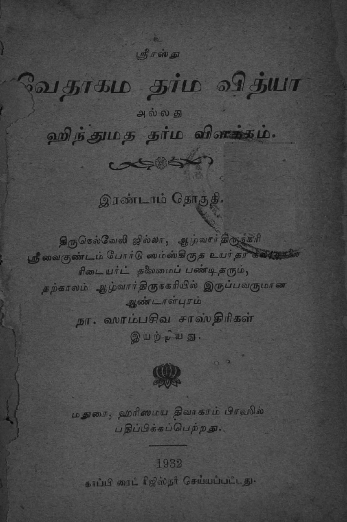 ஸ்ரீரஸ்து
வேதாகம தர்ம வித்யா
அல்லது
ஹிந்துமத தர்ம விளக்கம்.
இரண்டாம் தொகுதி.
திருநெல்வேலி ஜில்லா, ஆழ்வார்திருநகரி
ஸ்ரீவைகுண்டம் போர்டு ஸம்ஸ்கிருத உயர்தர
ரிடையர்ட் தலைமைப் பண்டிதரும்,
தற்காலம் ஆழ்வார்திருநகரியில் இருப்பவருமான
ஆண்டாள்புரம்
நா. ஸாம்பசிவ சாஸ்திரிகள்
இயற்றியது.
மதுரை, ஹரிஸமய திவாகரம் பிரஸில்
பதிப்பிக்கப்பெற்றது.
1932
காப்பி ரைட் ரிஜிஸ்தர் செய்யப்பட்டது.